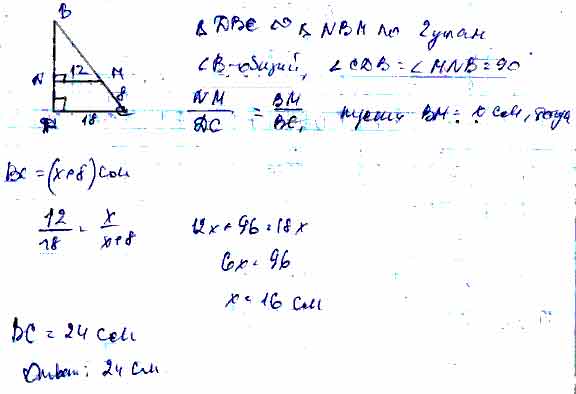 B
△ DBC ∾ △ NBM по 2 углам
N 12 M
∠B-общий, ∠CDB = ∠MNB = 90°
8
18
NM/DC = BM/BC, пусть BM = x см, тогда
BC = (x+8) см
12/18 = x/x+8
12x + 96 = 18x
6x = 96
x = 16 см
BC = 24 см
Ответ: 24 см